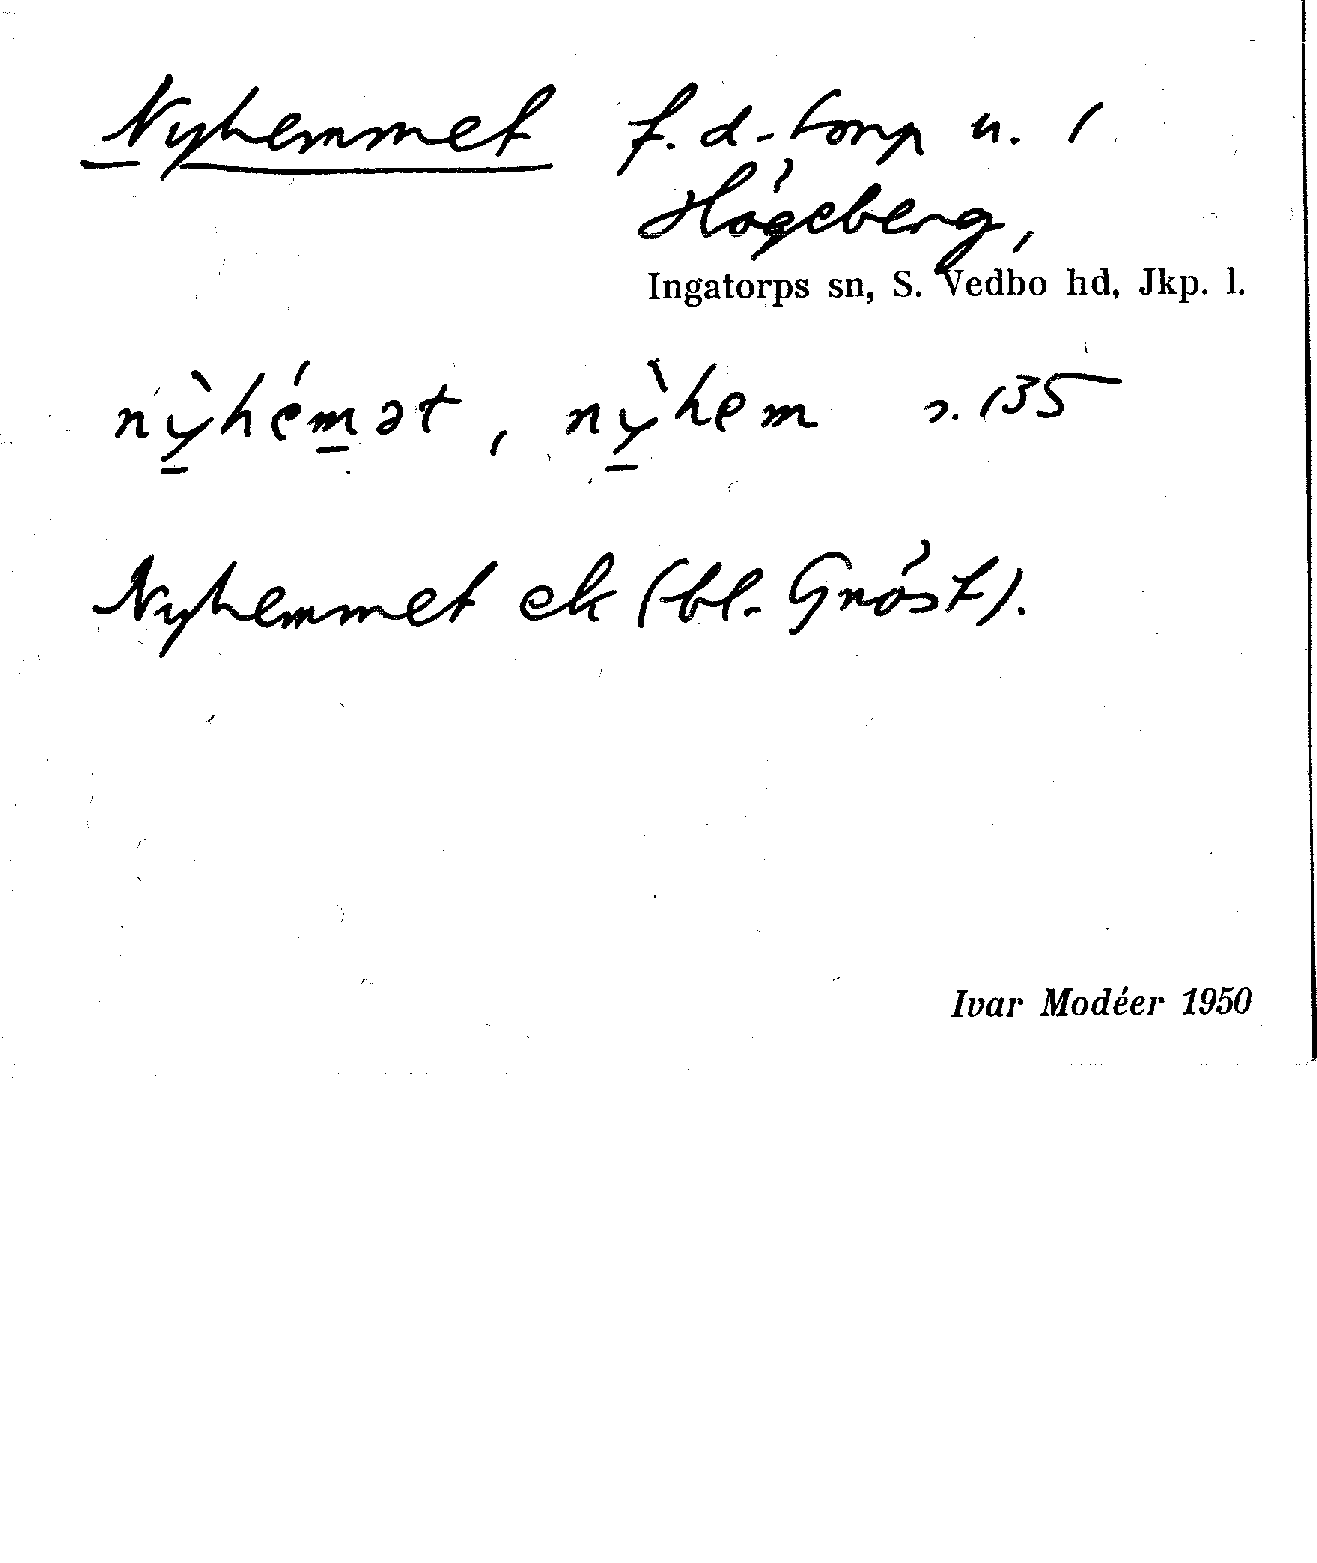 Nyhemmet f.d. torp u. 1
Högeberg,
Ingatorps sn, S. Vedbo hd, Jkp. l.
nỳhémət, nỳhem s. 135
Nyhemmet ek (bl. Gnöst).
Ivar Modéer 1950